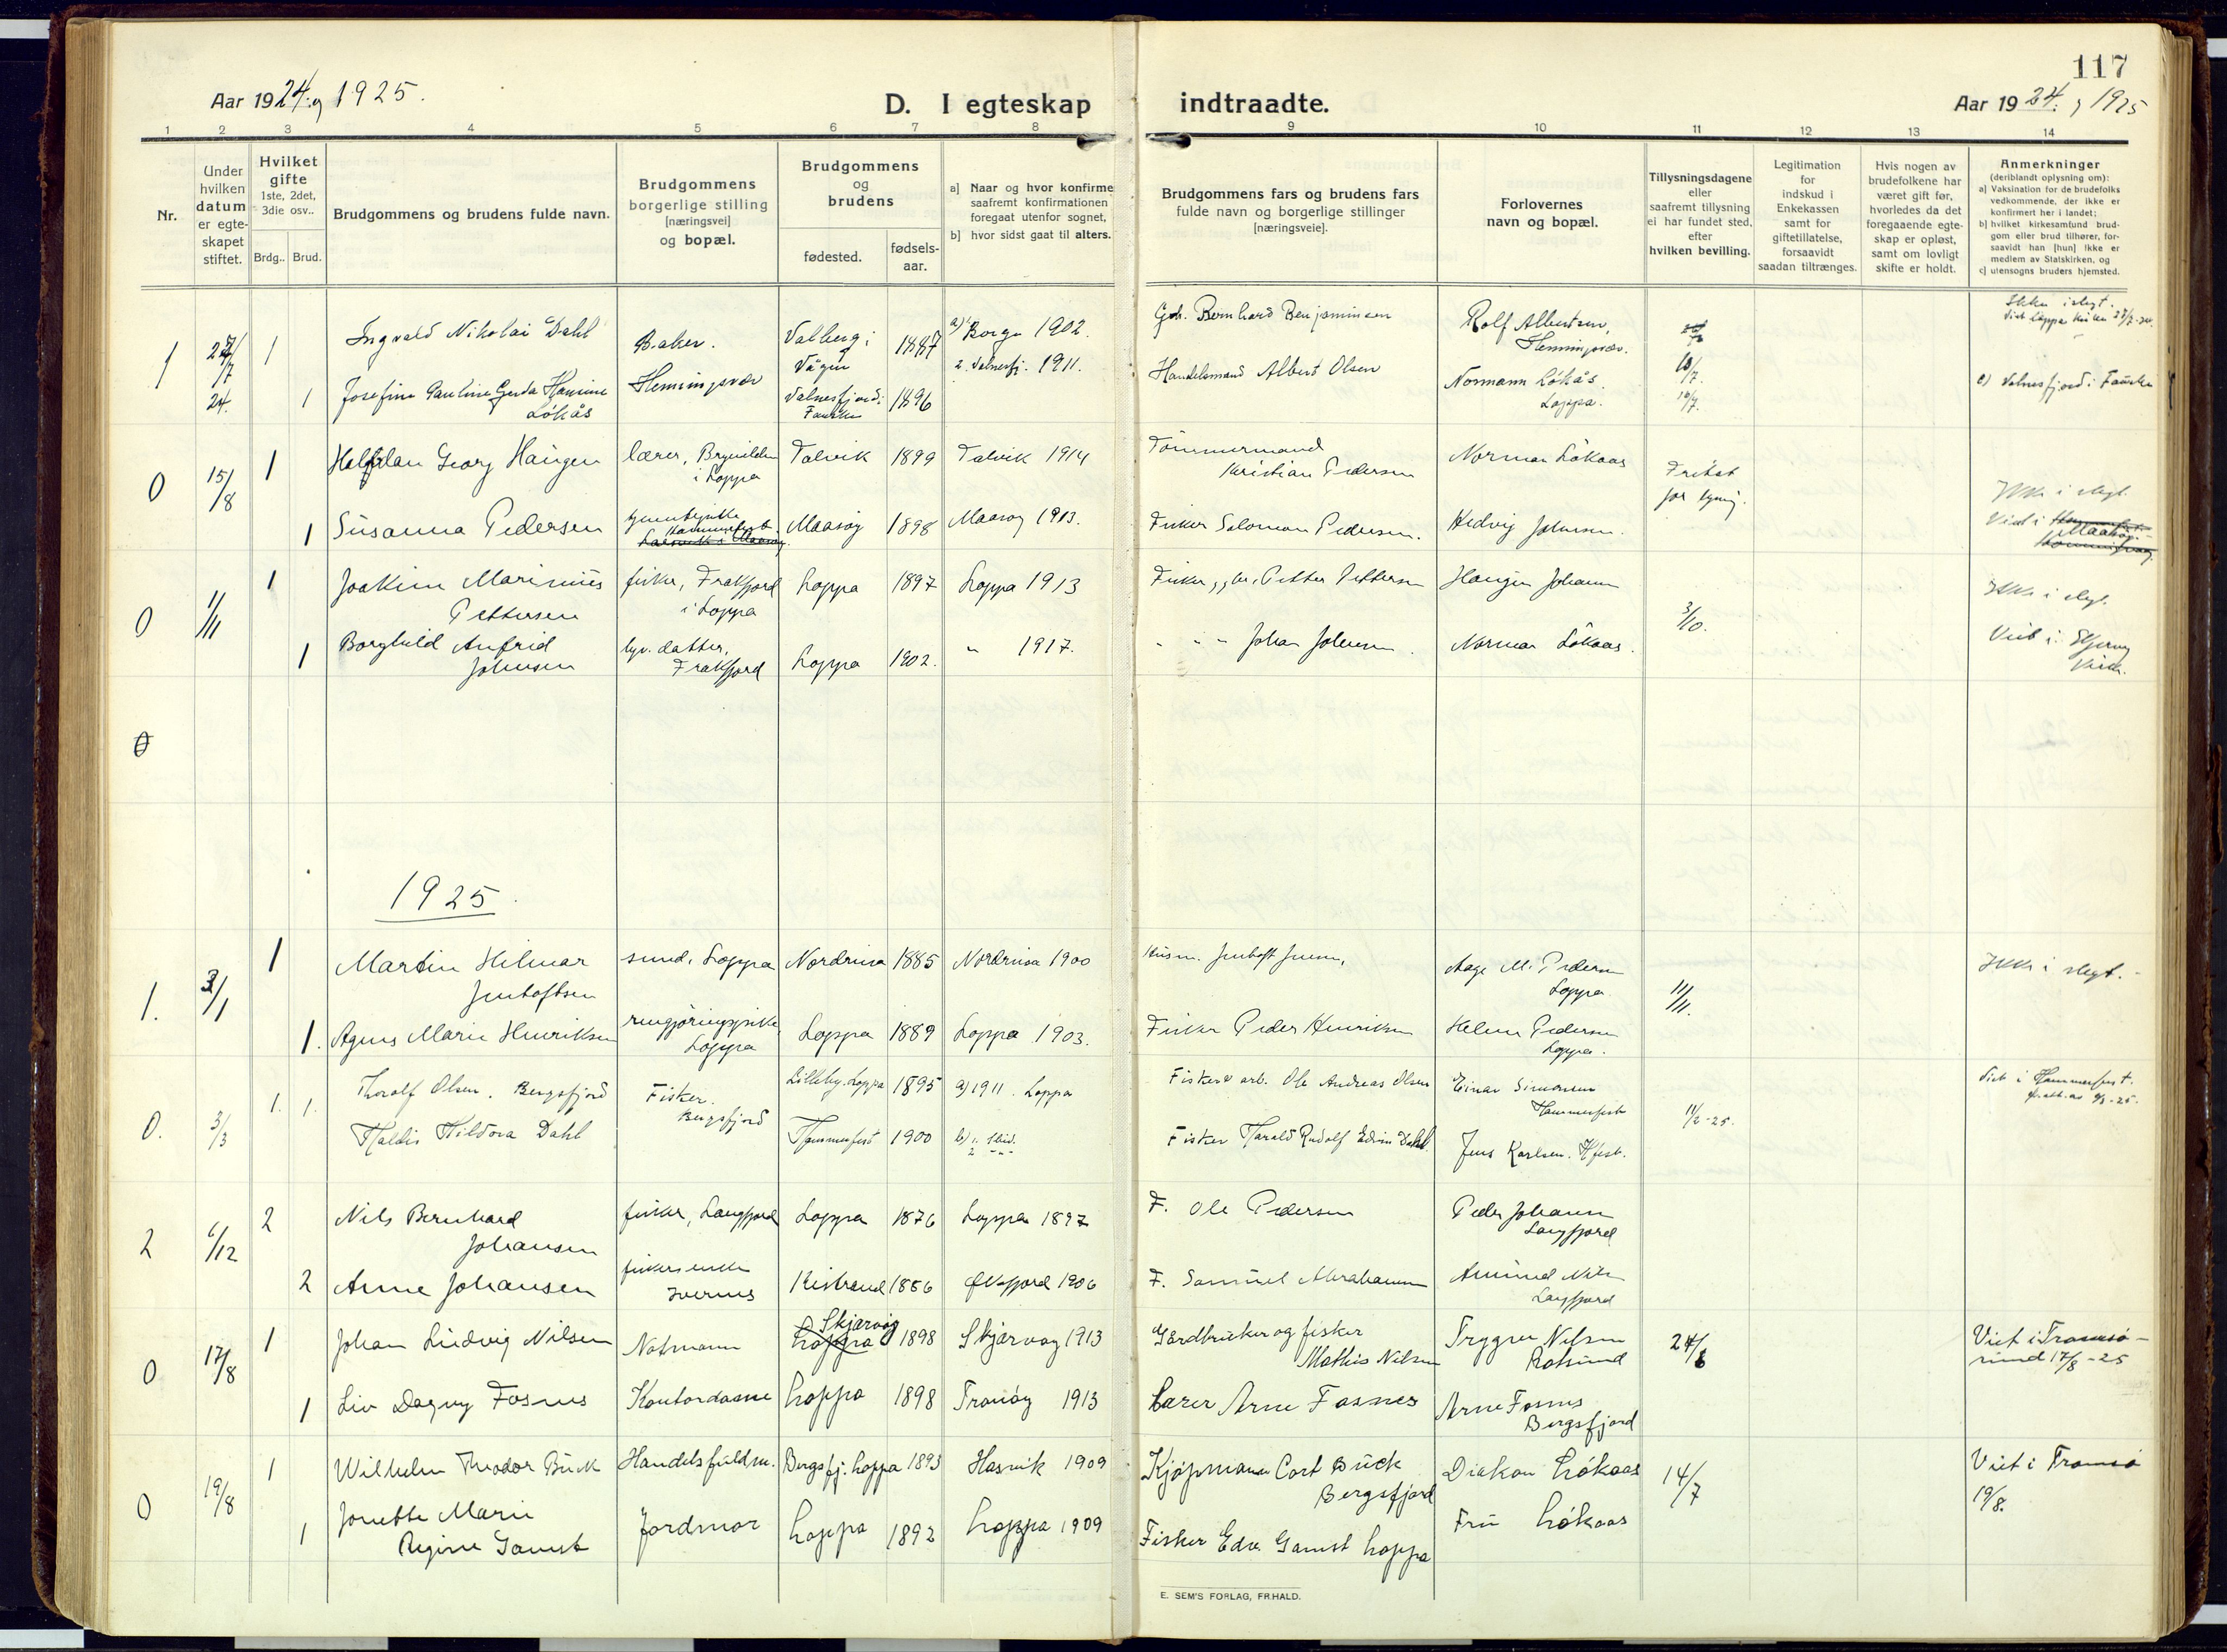 117
Aar 1924. og 1925.
D. I egteskap indtraadte.
Aar 1924. og 1925
1 2 3 4 5 6 7 8 9 10 11 12 13 14
Nr.
Under hvilken datum er egte-skapet stiftet.
Hvilket gifte
1ste, 2det, 3die osv..
Brdg.. Brud.
Brudgommens og brudens fulde navn.
Brudgommens borgerlige stilling [næringsvei] og bopæl.
Brudgommens og brudens
fødested.
fødsels-aar.
a] Naar og hvor konfirme saafremt konfirmationen foregaat utenfor sognet,
b] hvor sidst gaat til alters.
Brudgommens fars og brudens fars fulde navn og borgerlige stillinger [næringsveie].
Forlovernes navn og bopæl.
Tillysningsdagene eller saafremt tillysning ei har fundet sted, efter hvilken bevilling.
Legitimation for indskud i Enkekassen samt for giftetillatelse, forsaavidt saadan tiltrænges.
Hvis nogen av brudefolkene har været gift før, hvorledes da det foregaaende egte-skap er opløst, samt om lovligt skifte er holdt.
Anmerkninger
(deriblandt oplysning om):
a) Vaksination for de brudefolks vedkommende, der ikke er konfirmert her i landet;
b) hvilket kirkesamfund brud-gom eller brud tilhører, for-saavidt han [hun] ikke er medlem av Statskirken, og
c] utensogns bruders hjemsted.
1 27/7 24. 1 Ingvald Nikolai Dahl Baker. Valberg i Vågan 1887 a) Borge 1902. Bernhard Benjaminsen Rolf Albertsen, Henningsvær.
Ikke i slegt. Viet Loppa kirke 27/7-24.
1 Josefine Pauline Gerda Hansine Løkås Henningsvær Valnesfjord i Fauske 1896 2. Valnesfj. 1911. Handelsmand Albert Olsen Normann Løkås. Loppa.
c) Valnesfjord i Fauske
0 15/8 1 Halfdan Georg Haugen lærer, Brynilden i Loppa Talvik 1899 Talvik 1914 Tømmermand Kristian Pedersen Norman Løkaas Fritat for lysing.
Ikke i slegt.
1 Susanna Pedersen Hammerfest Maasøy 1898 Maasøy 1913. Fisker Salomon Pedersen. Hedvig Johnsen.
Viet i Maasøy.
0 1/11 1 Joakim Marinius Pettersen fisker, Frakfjord i Loppa Loppa 1897 Loppa 1913 Fisker Petter Pettersen Haugen Johansen 3/10.
Ikke i slegt.
1 Borghild Anfrid Johnsen datter, Frakfjord Loppa 1902. " 1917. " " " Johan Johnsen. Norman Løkaas.
Viet i Skjervøy kirke.
0
1925.
1. 3/1 1 Martin Hilmar Jentoftsen smed, Loppa Nordreisa 1885 Nordreisa 1900 Husm. Jentoft Jensen, Aage M. Pedersen Loppa. 11/11.
Ikke i slegt.
1. Agnes Marie Henriksen rengjøringspike Loppa Loppa 1889 Loppa 1903. Fisker Peder Henriksen Helene Pedersen Loppa.
0. 3/3 1. 1. Thoralf Olsen. Bergsfjord Fisker. Bergsfjord Lilleby. Loppa 1895 a) 1911. Loppa Fisker arb. Ole Andreas Olsen Einar Simonsen Hammerfest 11/2-25.
Viet i Hammerfest.
Haldis Hildora Dahl Hammerfest 1900 Fisker Harald Rudolf Edvin Dahl Jens Karlsen. Hfest.
2 6/12 2 Nils Bernhard Johansen fisker, Langfjord Loppa 1876 Loppa 1897 F. Ole Pedersen Peder Johansen Langfjord
2 Anne Johansen fiskerenke Kistrand 1886 Øksfjord 1906 F. Samuel Abrahamsen Amund Nils Langfjord
0 17/8 1 Johan Ludvig Nilsen Notmann Loppa Skjærvøy 1898 Skjærvøy 1913 Gårdbruker og fisker Mathis Nilsen Trygve Nilsen Rotsund 24/6
Viet i Tromsø-sund 17/8-25
1 Liv Dagny Fosnes Kontordame Loppa 1898 Tranøy 1913 Lærer Arne Fosnes Arne Fosnes Bergsfjord
0 19/8 1 Wilhelm Theodor Buck Handelsfuldm. Bergsfj. Loppa 1893 Hasvik 1909 Kjøpmann Cort Buck Bergsfjord Diakon Løkaas 14/7
Viet i Tromsø 19/8.
1 Jonette Marie Regine Gamst Jordmor Loppa 1892 Loppa 1909 Fisker Edv. Gamst Loppa Fru Løkaas
E. SEM'S FORLAG, FR.HALD.